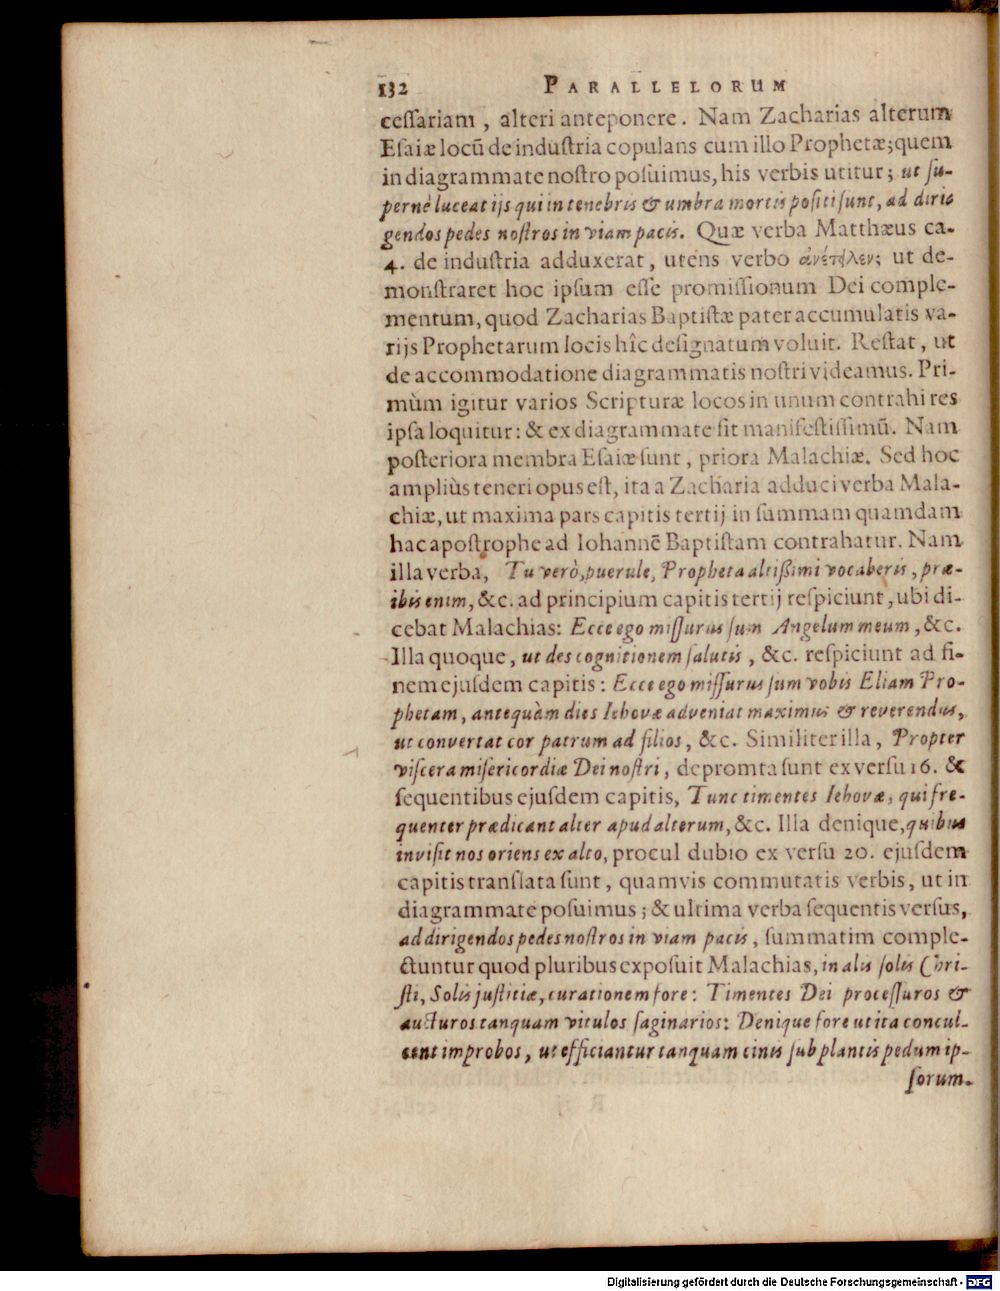 132 PARALLELORUM
ceſſariam, alteri anteponere. Nam Zacharias alterum
Eſaiæ locū de induſtria copulans cum illo Prophetæ; quem
in diagrammate noſtro poſuimus, his verbis utitur; ut ſu-
pernè luceat ijs qui in tenebris & umbra mortis poſiti ſunt, ad diri
gendos pedes noſtros in viam pacis. Quæ verba Matthæus ca.
4. de induſtria adduxerat, utens verbo ἀνέτηλεν; ut de-
monſtraret hoc ipſum eſſe promiſſionum Dei comple-
mentum, quod Zacharias Baptiſtæ pater accumulatis va-
rijs Prophetarum locis hîc deſignatum voluit. Reſtat, ut
de accommodatione diagrammatis noſtri videamus. Pri-
mùm igitur varios Scripturæ locos in unum contrahi res
ipſa loquitur: & ex diagrammate ſit manifeſtiſſimū. Nam
poſteriora membra Eſaiæ ſunt, priora Malachiæ. Sed hoc
ampliùs teneri opus eſt, ita a Zacharia adduci verba Mala-
chiæ, ut maxima pars capitis tertij in ſummam quamdam
hac apoſtrophe ad Iohannē Baptiſtam contrahatur. Nam
illa verba, Tu verò, puerule, Propheta altißimi vocaberis, præ-
ibis enim, &c. ad principium capitis tertij reſpiciunt, ubi di-
cebat Malachias: Ecce ego miſſurus ſum Angelum meum, &c.
Illa quoque, ut des cognitionem ſalutis, &c. reſpiciunt ad fi-
nem ejuſdem capitis: Ecce ego miſſurus ſum vobis Eliam Pro-
phetam, antequàm dies Iehovæ adveniat maximus & reverendus,
ut convertat cor patrum ad filios, &c. Similiter illa, Propter
viſcera miſericordiæ Dei noſtri, depromta ſunt ex verſu 16. &
ſequentibus ejuſdem capitis, Tunc timentes Iehovæ, qui fre-
quenter prædicant alter apud alterum, &c. Illa denique, quibus
inviſit nos oriens ex alto, procul dubio ex verſu 20. ejuſdem
capitis tranſlata ſunt, quamvis commutatis verbis, ut in
diagrammate poſuimus; & ultima verba ſequentis verſus,
ad dirigendos pedes noſtros in viam pacis, ſummatim comple-
ctuntur quod pluribus expoſuit Malachias, in alis ſolis Chri-
ſti, Solis juſtitiæ, curationem fore: Timentes Dei proceſſuros &
aucturos tanquam vitulos ſaginarios: Denique fore ut ita concul-
cent improbos, ut efficiantur tanquam cinis ſub plantis pedum ip-
ſorum.
Digitalisierung gefördert durch die Deutsche Forschungsgemeinschaft - DFG